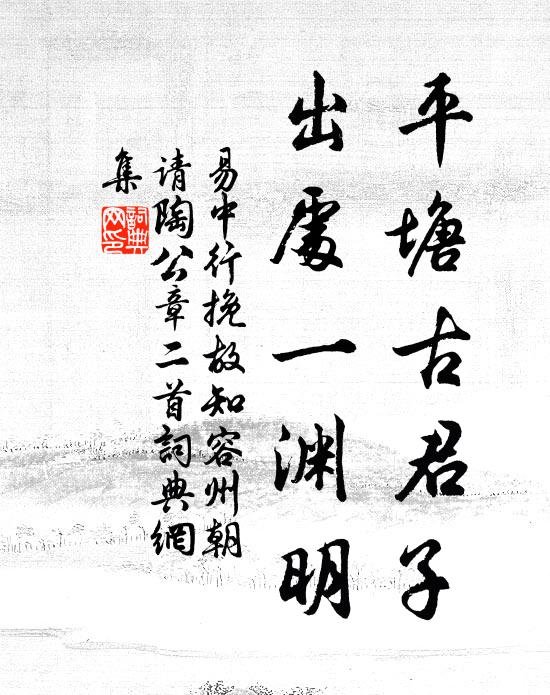 平塘古君子
出處一渊明
易中行挽故知容州朝
请陶公章二首詞典網
集
詞典
网印